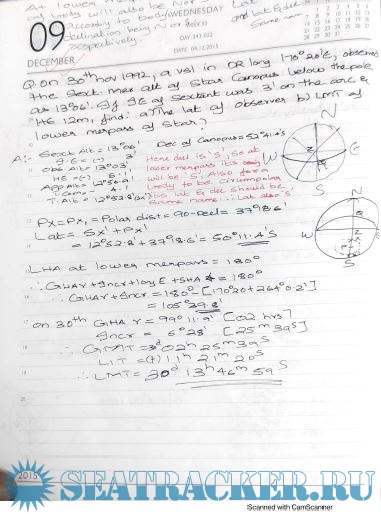 At lower merpass
obj body will also be Nor
according to body
declination being N or
respectively
WEDNESDAY
09
DAY 343.022
DATE 09.12.2015
DECEMBER
Q: On 30th Nov 1992, a vsl in DR long 170°20'E, observed
the Sext. Mer alt of Star Canopus below the pole
as 13°06'. If IE of Sextant was 3' on the arc &
HE 12m, find: a) The lat of observer b) LMT of
lower merpass of Star?
A:- Sext Alt = 13°06'
Dec of Canopus = 52°41.4'S
I.E = (-) 3'
Obs Alt = 13°03'
HE = (-) 6.1'
App Alt = 12°56.9'
T. Corr = 4.1
T. Alt = 12°52.8'
Here decl is 'S', so at
lower merpass its bearing
will be 'S', Also for a
body to be circumpolar
its lat & dec should be
same name ∴ Lat also 'S'
PX = PX₁ = Polar dist = 90-decl = 37°18.6'
Lat = SX' + PX'
= 12°52.8' + 37°18.6' = 50°11.4'S
LHA at lower merpass = 180°
∴ GHAγ + Incr + long E + SHA * = 180°
∴ GHAγ + Incr = 180° - [170°20' + 264°0.2']
= 105°39.8'
On 30th GHA γ = 99°11.9' [02 hrs]
Incr = 6°28' [25m 39s]
∴ GMT = 30d 02h 25m 39s
LIT = (+) 11h 21m 20s
∴ LMT = 30d 13h 46m 59s
N
W
E
S
N
W
S
2015
SEATRACKER.RU
Scanned with CamScanner